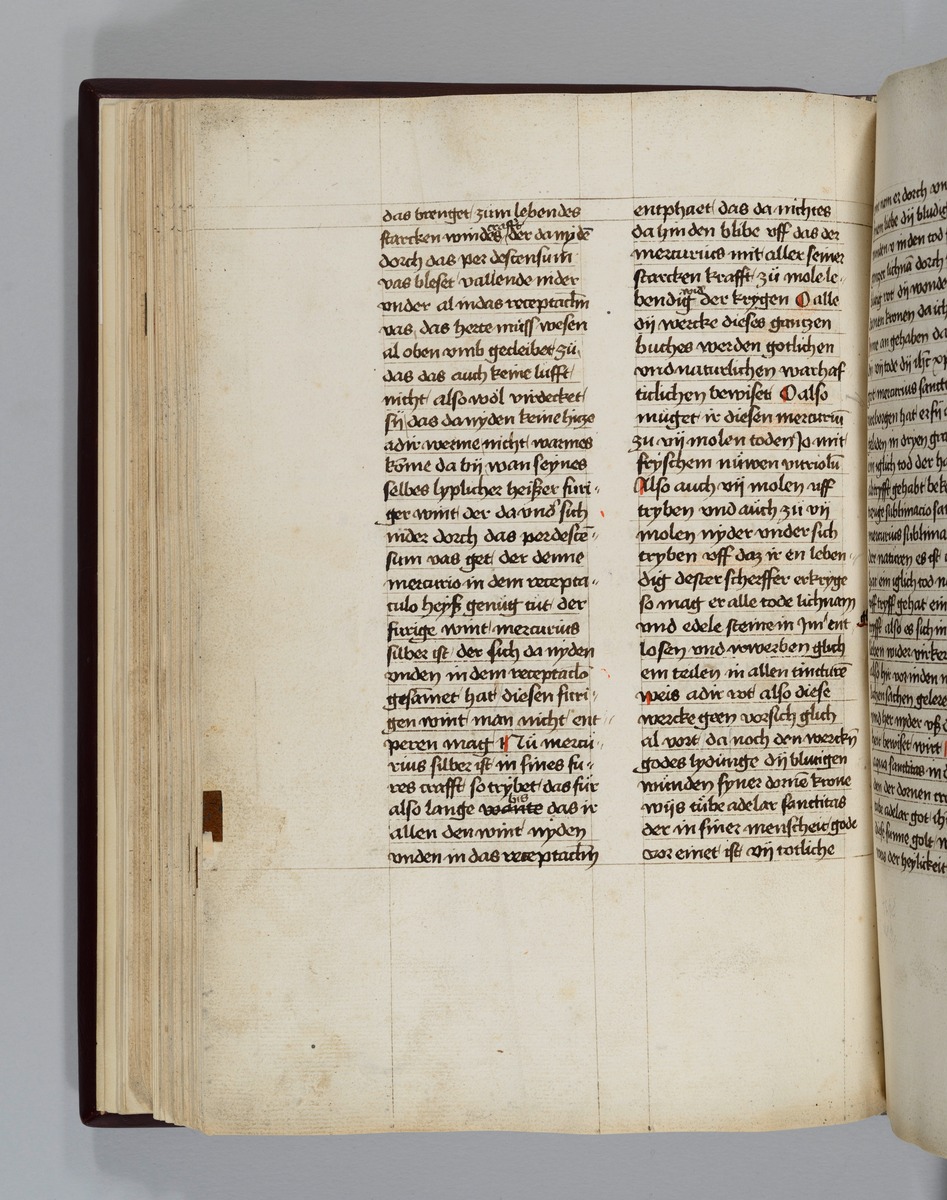 das brenget zum lebendes
starcken windes crafft der da nydē
dorch das per descensum
vas bleset vallende nider
vnder al in das receptaclm
vas das herte muss wesen
al oben vmb gecleibet zu
das das auch keine lufft
nicht also wol virdecket
sij das da nyden keine hicze
adir werme nicht warmes
kōme da bij wan seynes
selbes lyplicher heißer furi-
ger wint der da vnd sich
nider dorch das perdescē-
sum vas get der denne
mercurio in dem recepta-
culo heyß genug tut der
furige wint mercurius
silber ist der sich da nyden
vnden in dem receptaclo
gesāmet hat diesen furi-
gen wint man nicht ent
peren mag Nu mercu-
rius silber ist in sines fu-
res crafft so trybet das für
also lange wante bis das ir
allen den wint nyden
vnden in das receptaclm
entphaet das da nichtes
da hinden blibe vff das der
mercurius mit aller seiner
starcken krafft zu mole le-
bendig wid der krygen O alle
dij wercke dieses ganczen
buches werden gotlichen
vnd naturlichen warhaf
ticlichen bewiset O also
muget ir diesen mercuriū
zu vij molen toden Jo mit
fryschem nuwen vitriolū
Also auch vij molen vff
tryben vnd auch zu vij
molen nyder vnder sich
tryben vff daz ir en leben-
dig dester scherffer erkryge
so mag er alle tode lichnam
vnd edele steine in Jm ent
losen vnd vorwerben glich
em teilen in allen tincturē
weis adir rot also diese
wercke geen vorsich glich
al vort da noch den werckn
godes lydunge dij blutigen
wunden syner dornē krone
wijs tube adelar sanctitas
der in siner menscheit gode
vor einet ist vij totliche